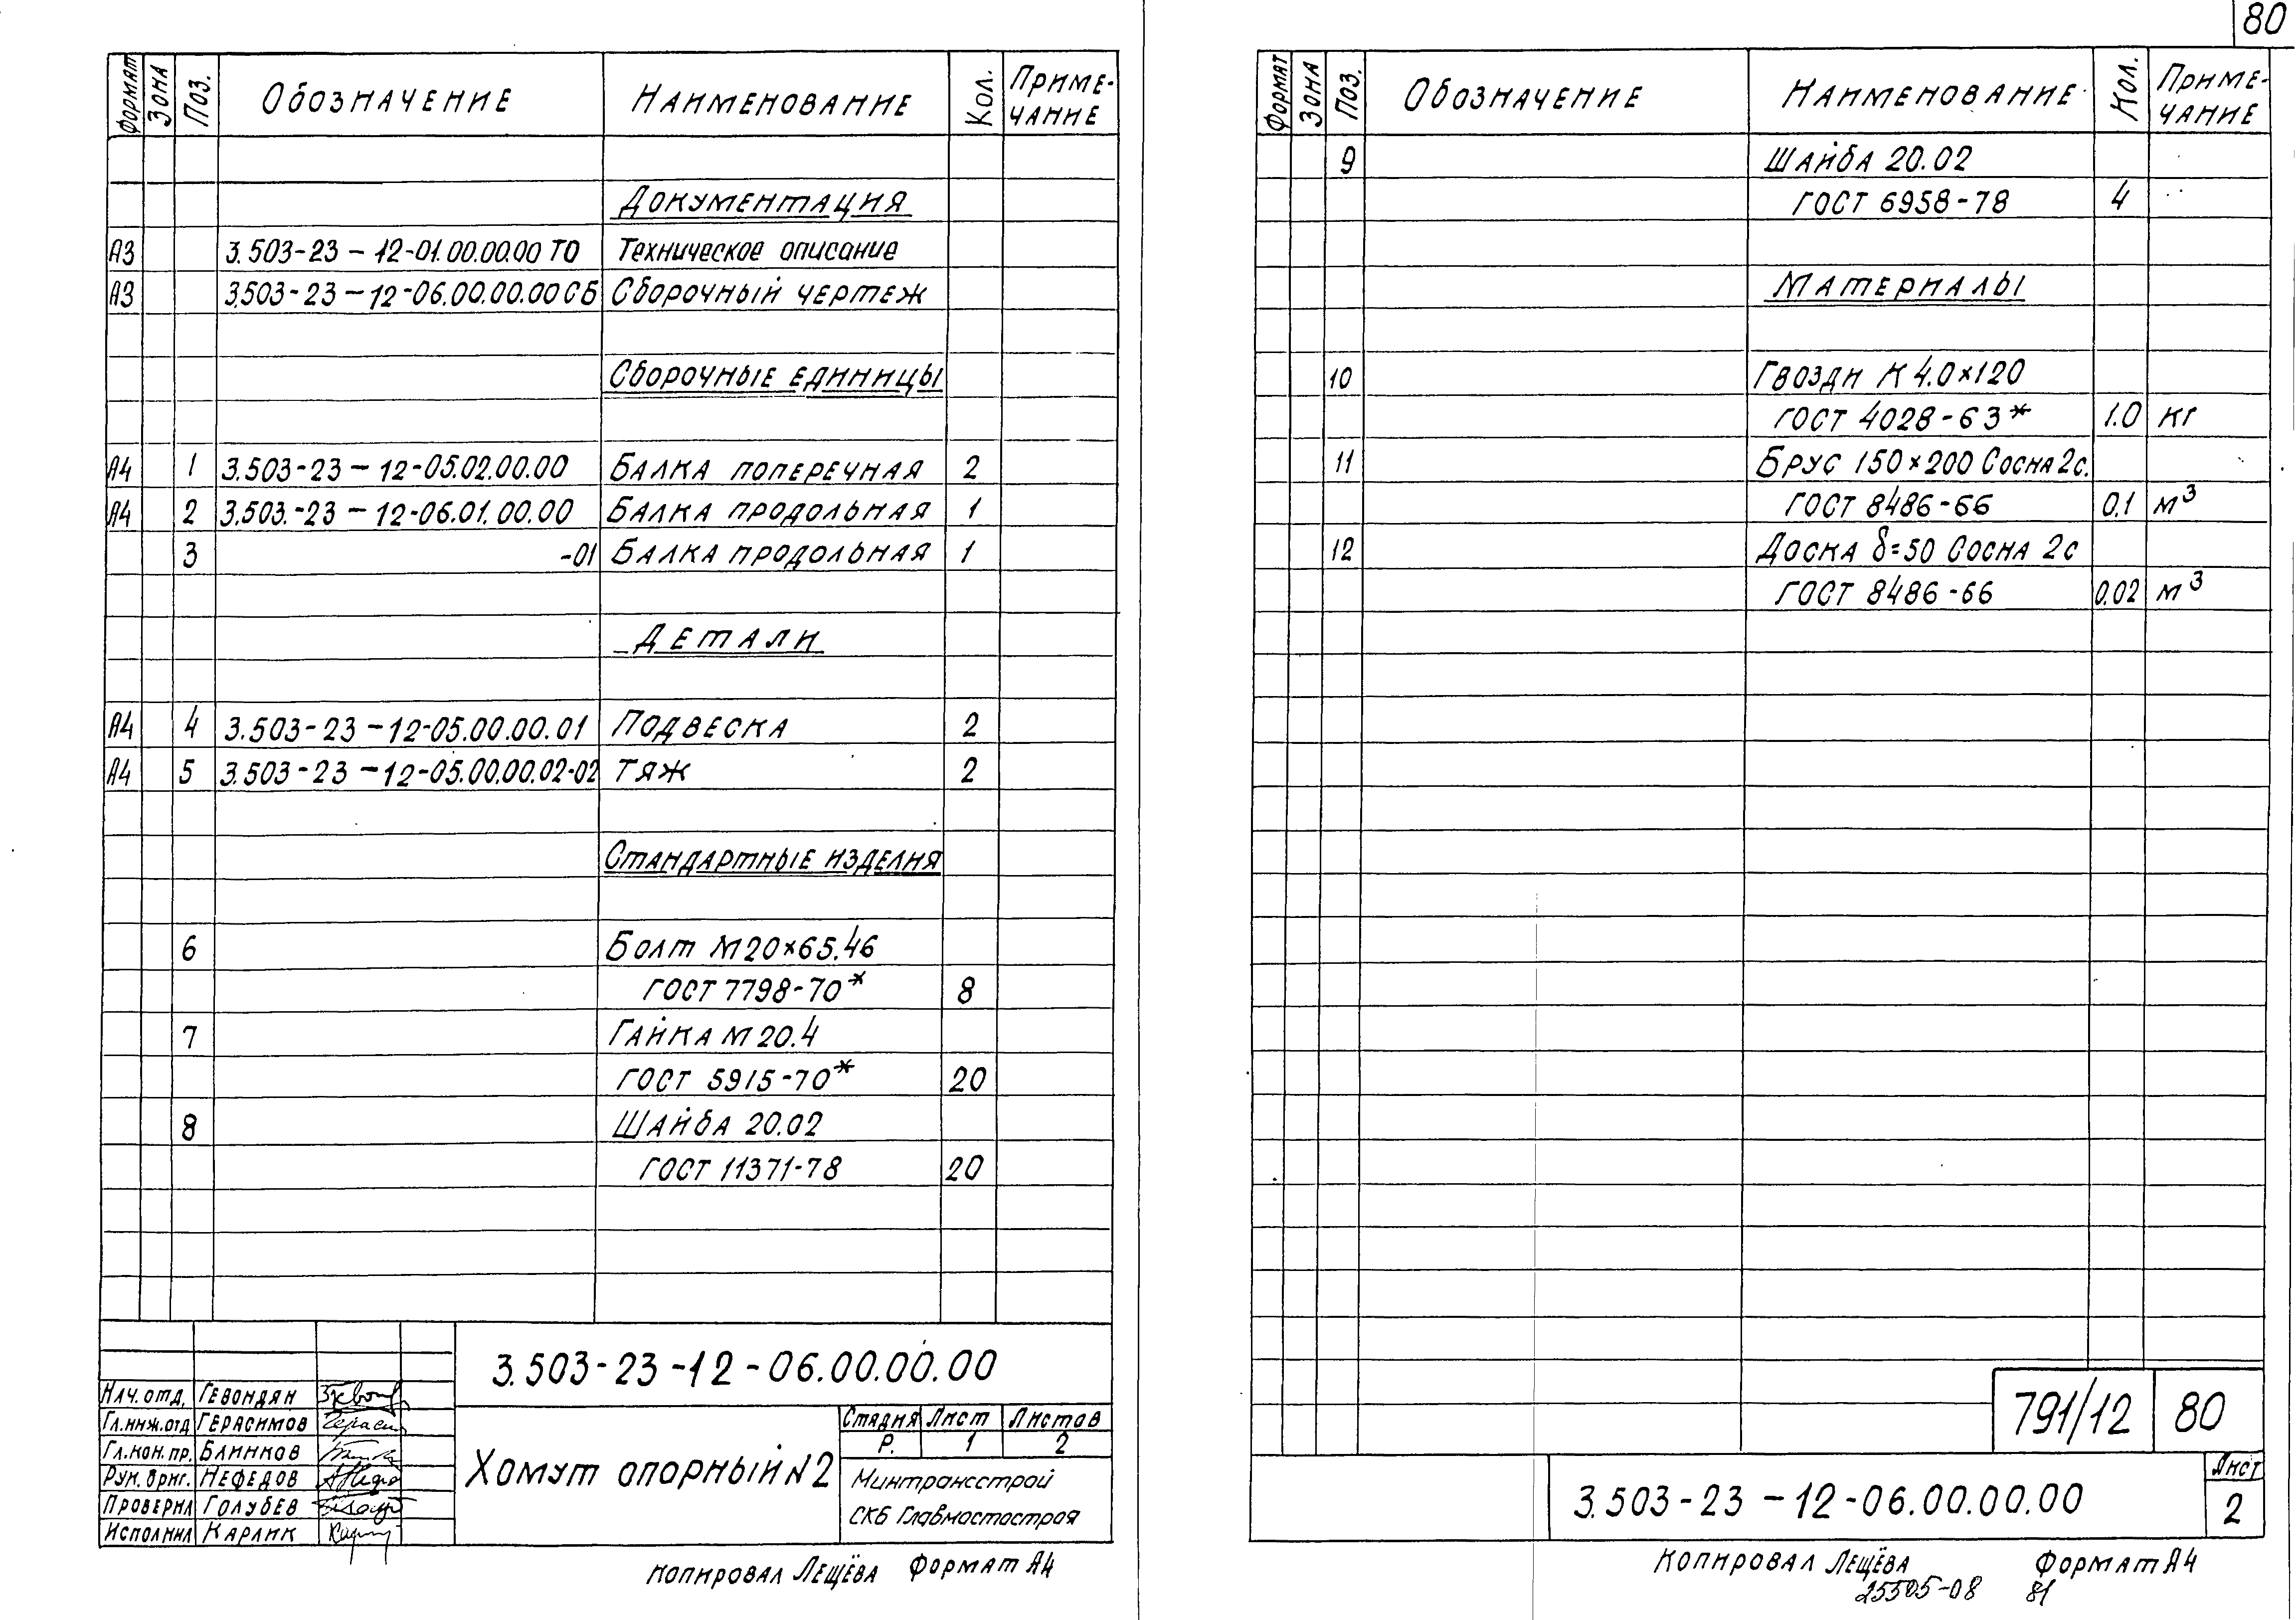 80
Формат Зона Поз. Обозначение Наименование Кол. Приме-
чание
Документация
А3 3.503-23-12-01.00.00.00 ТО Техническое описание
А3 3.503-23-12-06.00.00.00 СБ Сборочный чертеж
Сборочные единицы
А4 1 3.503-23-12-05.02.00.00 Балка поперечная 2
А4 2 3.503.-23-12-06.01.00.00 Балка продольная 1
3 -01 Балка продольная 1
Детали
А4 4 3.503-23-12-05.00.00.01 Подвеска 2
А4 5 3.503-23-12-05.00.00.02-02 Тяж 2
Стандартные изделия
6 Болт М20×65.46
ГОСТ 7798-70* 8
7 Гайка М20.4
ГОСТ 5915-70* 20
8 Шайба 20.02
ГОСТ 11371-78 20
3.503-23-12-06.00.00.00
Нач.отд. Гевондян
Гл.инж.отд Герасимов
Гл.кон.пр. Блинков
Рук.бриг. Нефедов
Проверил Голубев
Исполнил Карлик
Хомут опорный N2
Стадия Лист Листов
Р. 1 2
Минтрансстрой
СКБ Главмостостроя
Копировал Лещёва Формат А4
Формат Зона Поз. Обозначение Наименование Кол. Приме-
чание
9 Шайба 20.02
ГОСТ 6958-78 4
Материалы
10 Гвозди К 4.0×120
ГОСТ 4028-63* 1.0 кг
11 Брус 150×200 Сосна 2с.
ГОСТ 8486-66 0.1 м³
12 Доска δ=50 Сосна 2с
ГОСТ 8486-66 0.02 м³
791/12 80
3.503-23-12-06.00.00.00
Лист
2
Копировал Лещёва Формат А4
25505-08 81